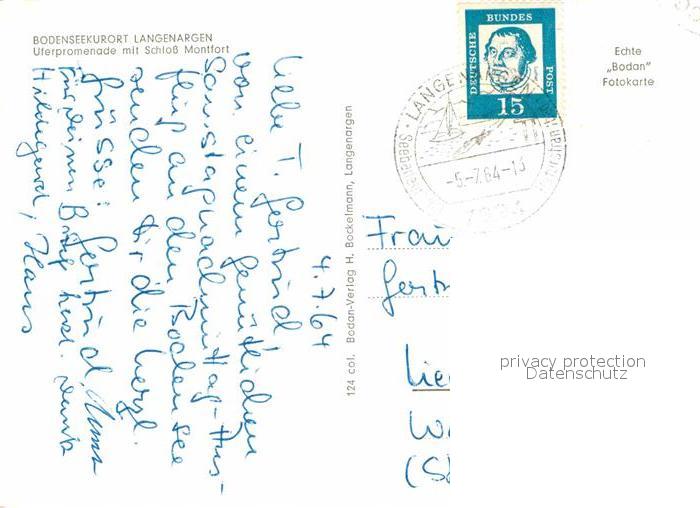 BODENSEEKURORT LANGENARGEN
Uferpromenade mit Schloß Montfort
Echte
„Bodan"
Fotokarte
DEUTSCHE BUNDES POST
15
LANGENARGEN
-5.-7.64-13
7994
4.7.64
Liebe T. Gertrud
Von einem gemütlichen
Samstagnachmittag-Aus-
flug an den Bodensee
senden wir die herzl.
Grüsse! Gertrud,
Für Deinen Brief herzl. Dank
Hildegard, Hans
124 col. Bodan-Verlag H. Bockelmann, Langenargen
Frau
Gertr
Lie
W
(S
privacy protection
Datenschutz